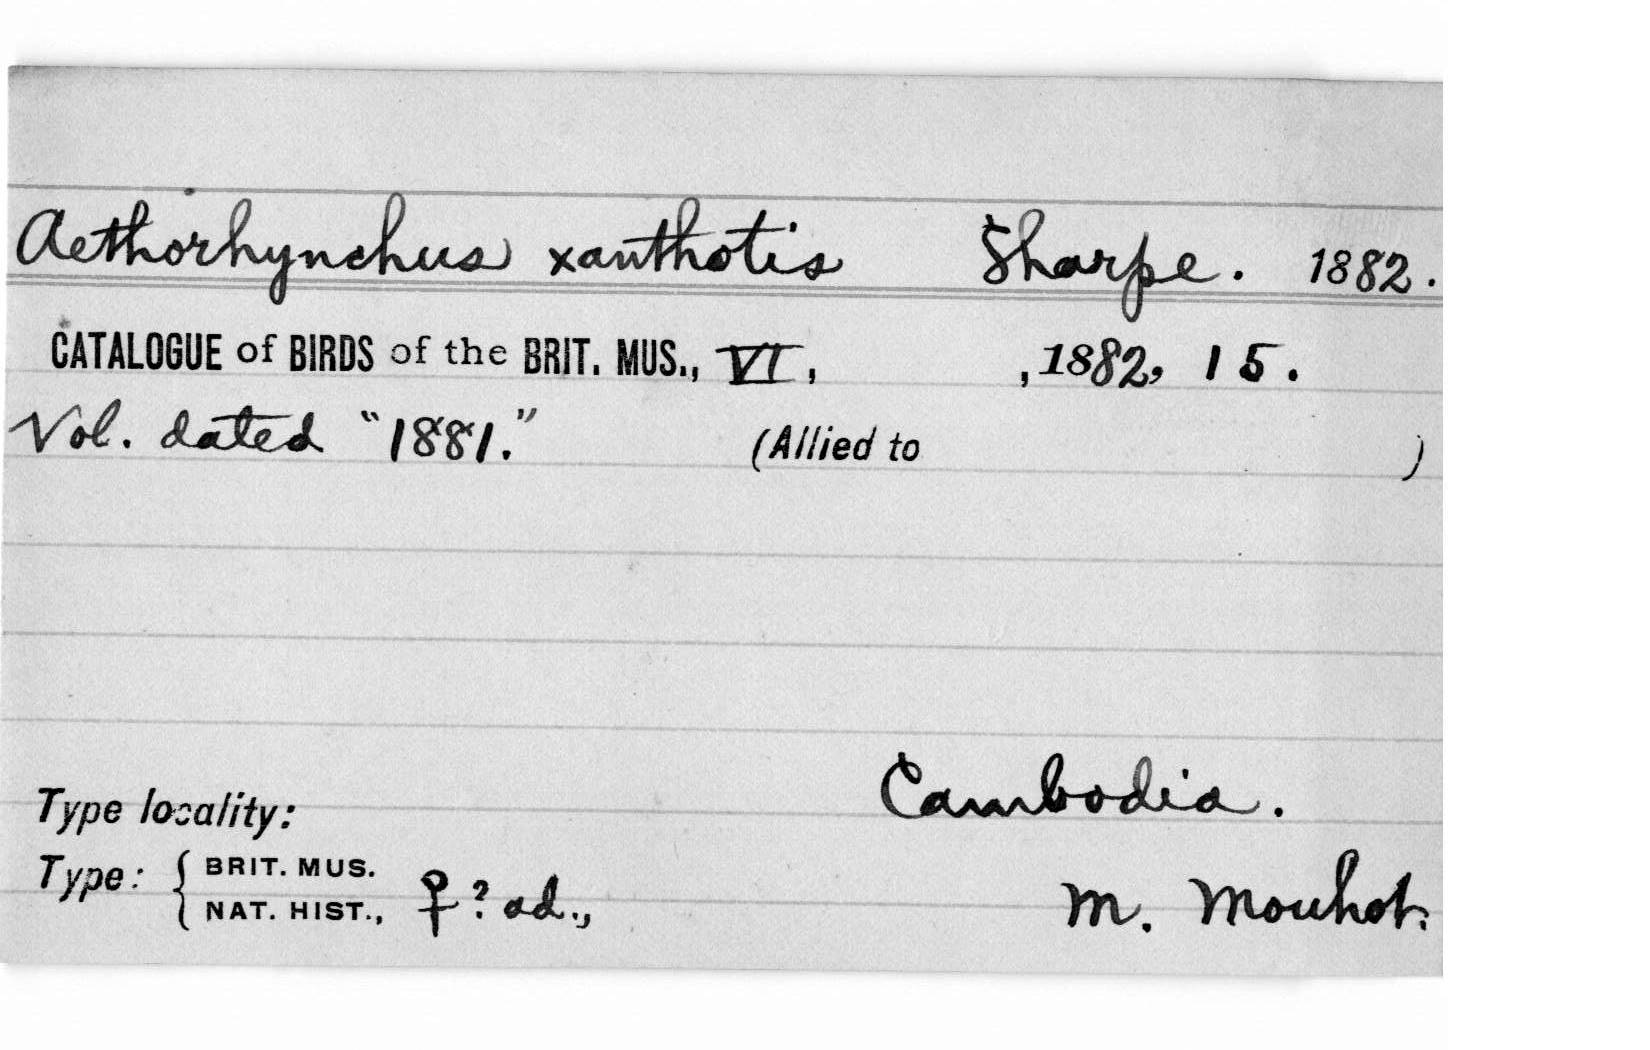 Aethorhynchus xanthotis Sharpe. 1882.
CATALOGUE of BIRDS of the BRIT. MUS., VI, , 1882, 15.
Vol. dated "1881." (Allied to )
Type locality: Cambodia.
Type: { BRIT. MUS.
NAT. HIST., ♀? ad., M. Mouhot.